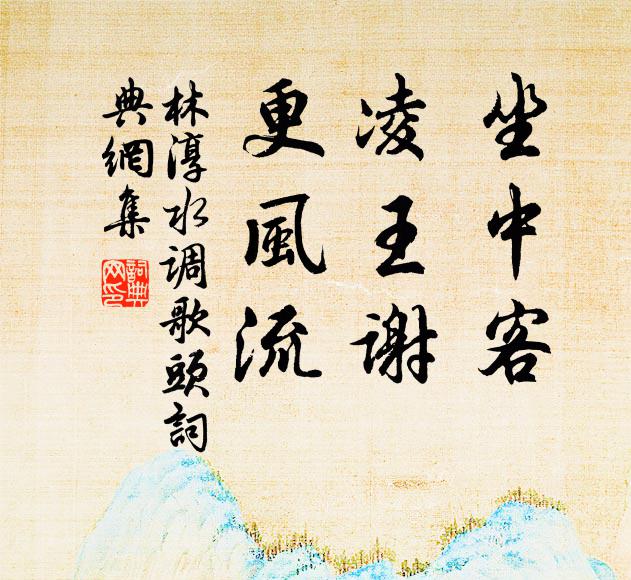 坐中客
凌王謝
更風流
林淳水调歌頭詞
典網集
詞典
网印